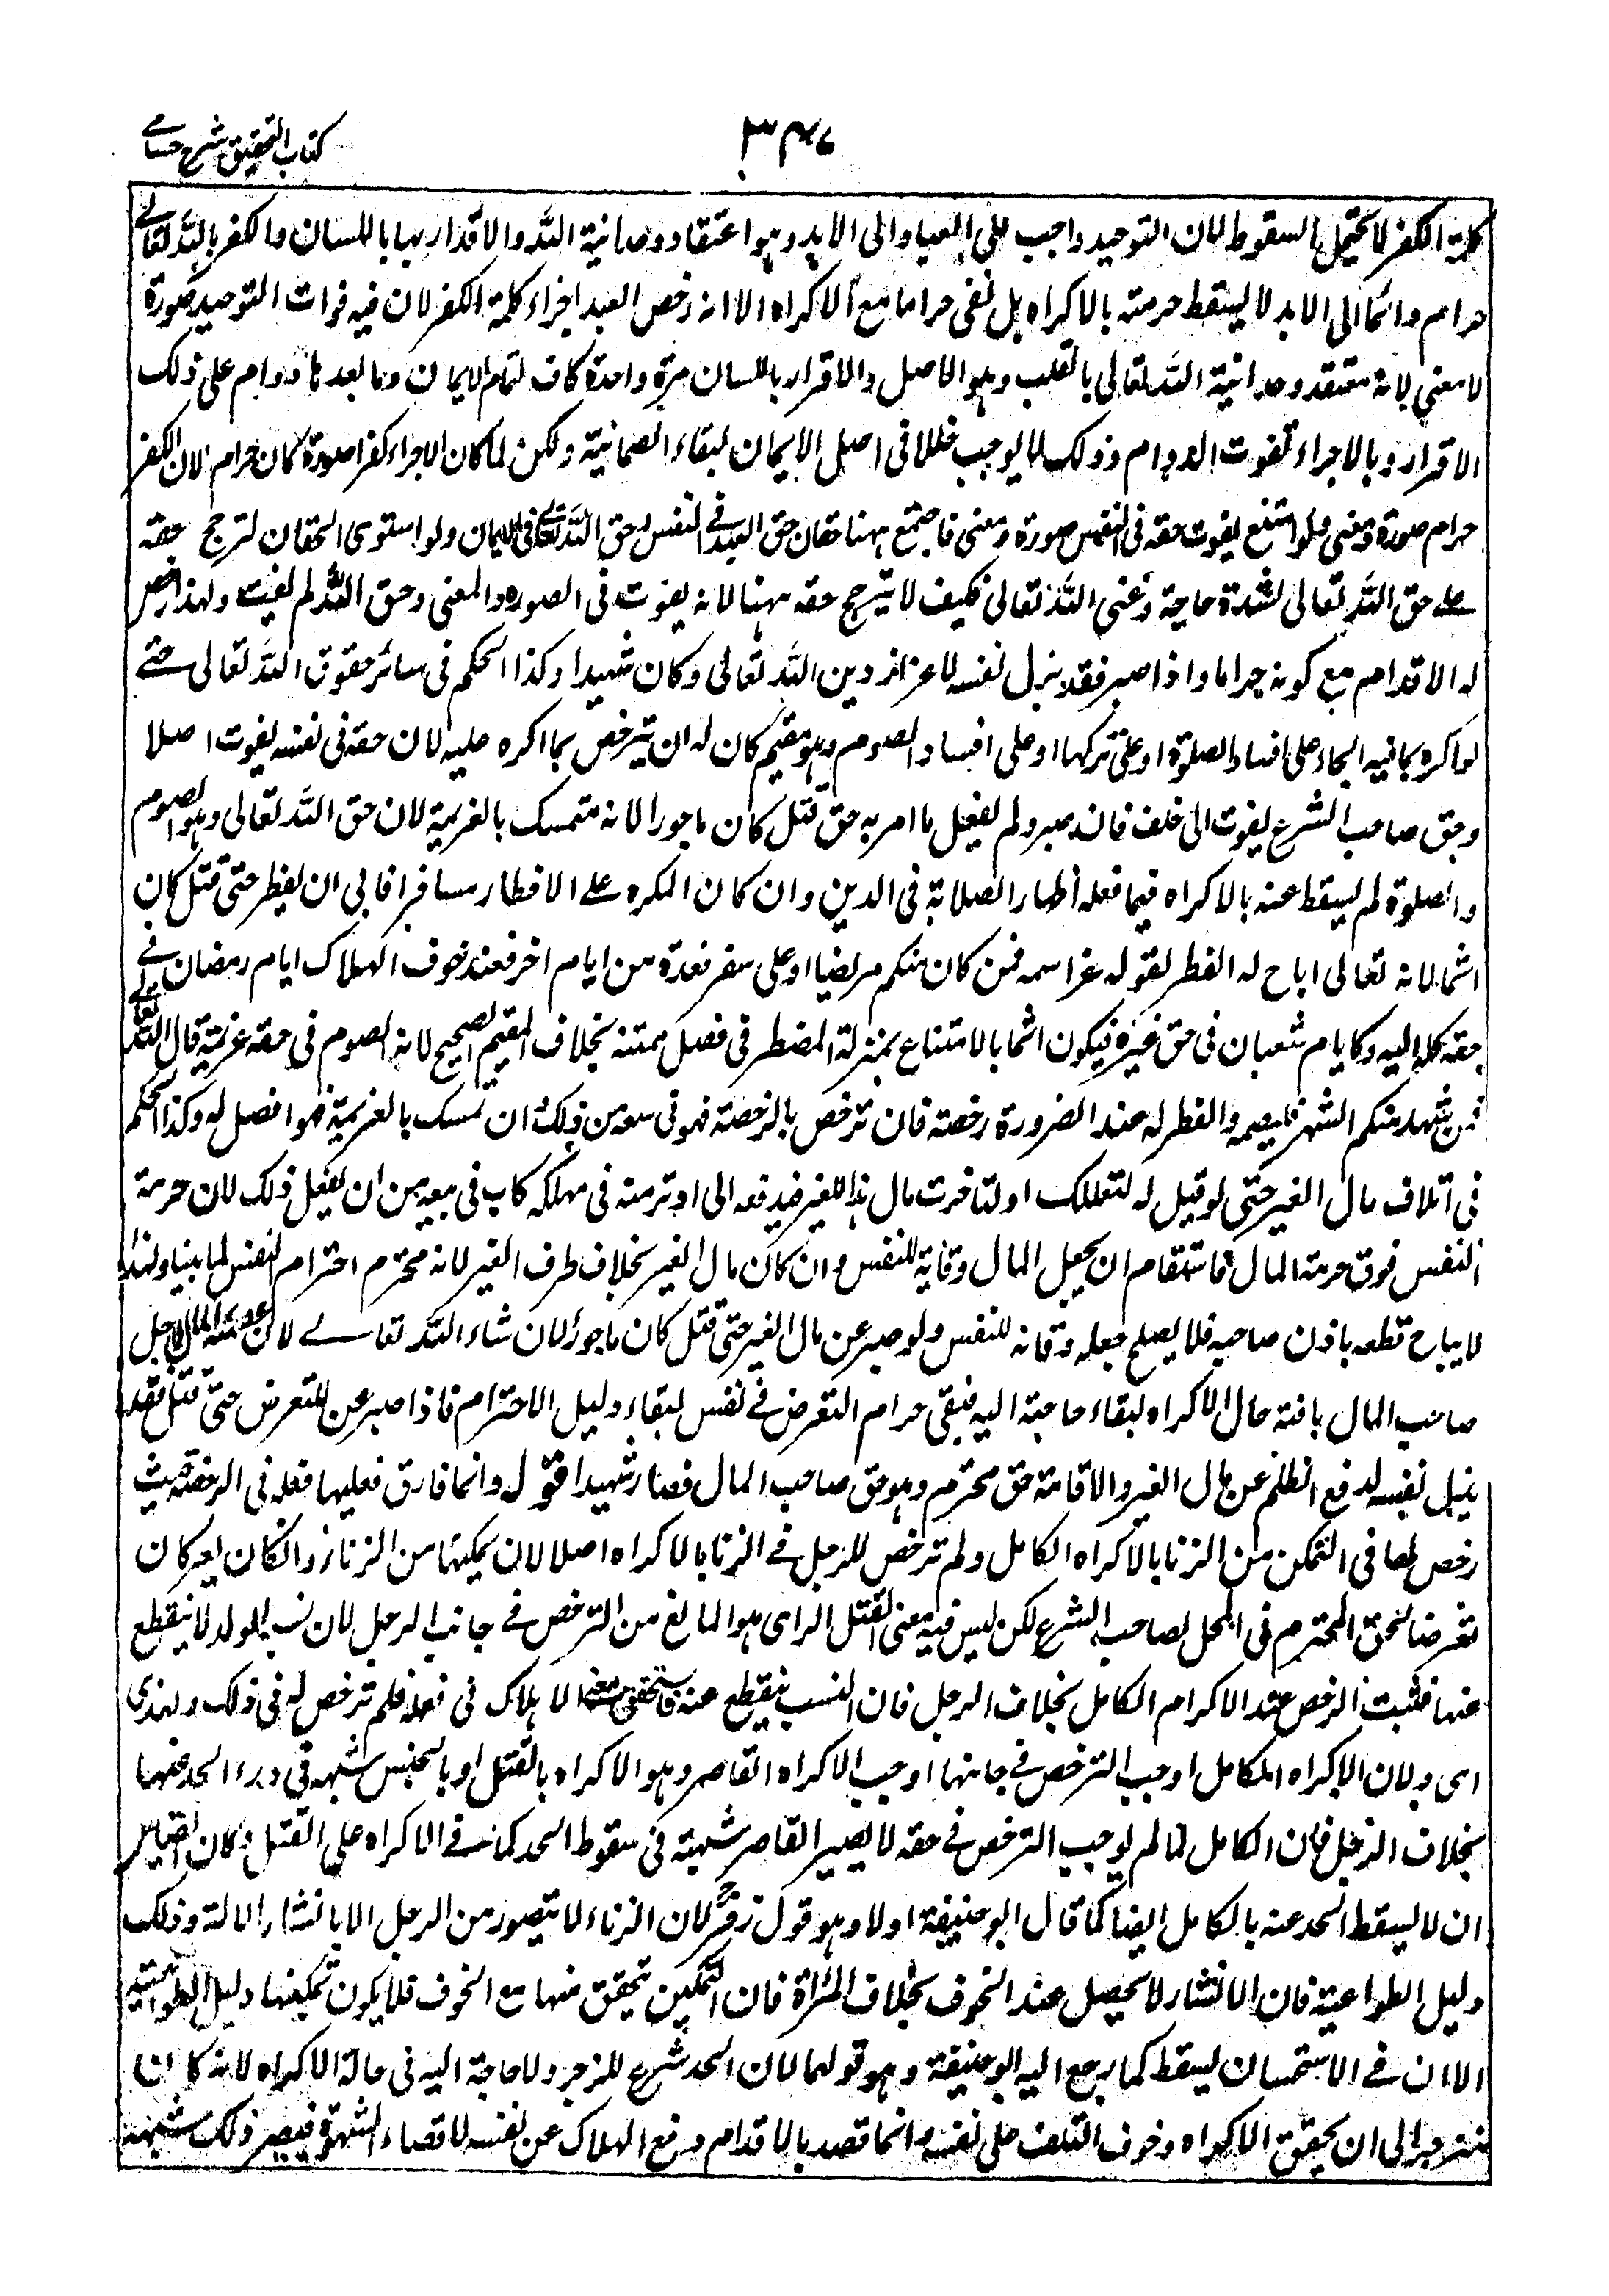 كتاب التحقيق شرح حسامي
٣٤٧
كلمة الكفر لا يحتمل السقوط لان التوحيد واجب على العباد الى الابد وهو اعتقاد وحدانية الله والاقرار بها باللسان والكفر بالله تعالى
حرام دائما الى الابد لا يسقط حرمته بالاكراه بل تبقى حراما مع الاكراه الا انه رخص العبد اجراء كلمة الكفر لان فيه فوات التوحيد صورة
لا معنى لانه معتقد وحدانية الله تعالى بالقلب وهو الاصل والاقرار باللسان مرة واحدة كاف لتمام الايمان وما بعدها دوام على ذلك
الاقرار وبالاجراء تفوت الدوام وذلك لا يوجب خللا في اصل الايمان لبقاء الطمانية ولكن لما كان الاجراء كفرا صورة كان حرام لان الكفر
حرام صورة ومعنى فلو امتنع يفوت حقه في النفس صورة ومعنى فاجتمع ههنا حقان حق العبد في النفس وحق الله تعالى في الايمان ولو استوى الحقان لترجح حقه
على حق الله تعالى لشدة حاجة وغنى الله تعالى فكيف لا يترجح حقه ههنا لانه يفوت في الصوره والمعنى وحق الله لم يفت ولهذا رخص
له الاقدام مع كونه حراما واذا صبر فقد بذل نفسه لاعزاز دين الله تعالى وكان شهيدا وكذا الحكم في سائر حقوق الله تعالى حتى
لو اكره بما فيه الجاء على افساد الصلوة او على تركها او على افساد الصوم وهو مقيم كان له ان يترخص بما اكره عليه لان حقه في نفسه يفوت اصلا
وحق صاحب الشرع يفوت الى خلف فان صبر ولم يفعل ما امر به حتى قتل كان ماجورا لانه متمسك بالعزيمة لان حق الله تعالى وهو الصوم
والصلوة لم يسقط عنه بالاكراه فيما فعله اظهار الصلابة في الدين وان كان المكره على الافطار مسافرا فابى ان يفطر حتى قتل كان
اثما لانه تعالى اباح له الفطر بقوله عز اسمه فمن كان منكم مريضا او على سفر فعدة من ايام اخر فعند خوف الهلاك ايام رمضان في
حقه كلياليه وكايام شعبان في حق غيره فيكون اثما بالامتناع بمنزلة المضطر في فصل ميتة بخلاف المقيم الصحيح لانه الصوم في حقه عزيمة قال الله تعالى
فمن شهد منكم الشهر فليصمه والفطر له عند الضرورة رخصة فان ترخص بالرخصة فهو في سعة من ذلك ان تمسك بالعزيمة فهو افضل له وكذا الحكم
في اتلاف مال الغير حتى لو قيل له لنقتلنك او لتاخذن مال هذا الغير فيدفعه الى او ترمينه في مهلكه كان في سعة من ان يفعل ذلك لان حرمة
النفس فوق حرمة المال فاستقام ان يجعل المال وقاية للنفس وان كان مال الغير بخلاف طرف الغير لانه محترم احترام النفس لما بينا ولهذا
لا يباح قطعه باذن صاحبه فلا يصلح جعله وقاية للنفس ولو صبر عن مال الغير حتى قتل كان ماجورا ان شاء الله تعالى لان عصمة المال لاجل
صاحب المال باقية حال الاكراه لبقاء حاجته اليه فبقى حرام التعرض في نفس لبقاء دليل الاحترام فاذا صبر عن التعرض حتى قتل فقد
بذل نفسه لدفع الظلم عن مال الغير والاقامة حق محترم وهو حق صاحب المال فصار شهيدا قوله وانما فارق فعليها فعله في الرخصة حيث
رخص لها في التمكن من الزنا بالاكراه الكامل ولم ترخص للرجل في الزنا بالاكراه اصلا لان تمكينها من الزنا زوالكان يعركان
تعرضا لحق المحترم في المحل لصاحب الشرع لكن ليس فيه معنى القتل الذى هو المانع من الترخص في جانب الرجل لان نسب الولد لا ينقطع
عنها فثبت الرخص عند الاكرام الكامل بخلاف الرجل فان النسب ينقطع عنه فاستحق معنى الاهلاك في فعله فلم ترخص له في ذلك ولهذا
اى ولان الاكراه الكامل اوجب الترخص في جانبها اوجب الاكراه القاصر وهو الاكراه بالقتل او بالحبس شبهة في درء الحد عنها
بخلاف الرجل فان الكامل لما لم يوجب الترخص في حقه لا يصير القاصر شبهة في سقوط الحد كما في الاكراه على القتل وكان القياس
ان لا يسقط الحد عنه بالكامل ايضا كما قال ابو حنيفة اولا وهو قول زفر لان الزناء لا يتصور من الرجل الا بانتشار الالة وذلك
دليل الطواعية فان الانتشار لا يحصل عند الخوف بخلاف المرأة فان التمكين يتحقق منها مع الخوف فلا يكون تمكينها دليل الطواعية
الا ان في الاستحسان يسقط كما رجع اليه ابو حنيفة وهو قولهما لان الحد شرع للزجر ولا حاجة اليه في حالة الاكراه لانه كان
منزجرا الى ان يحقق الاكراه وخوف التلف على نفسه وانما قصد بالاقدام دفع الهلاك عن نفسه لا قضاء الشهوة فيصير ذلك شبهة